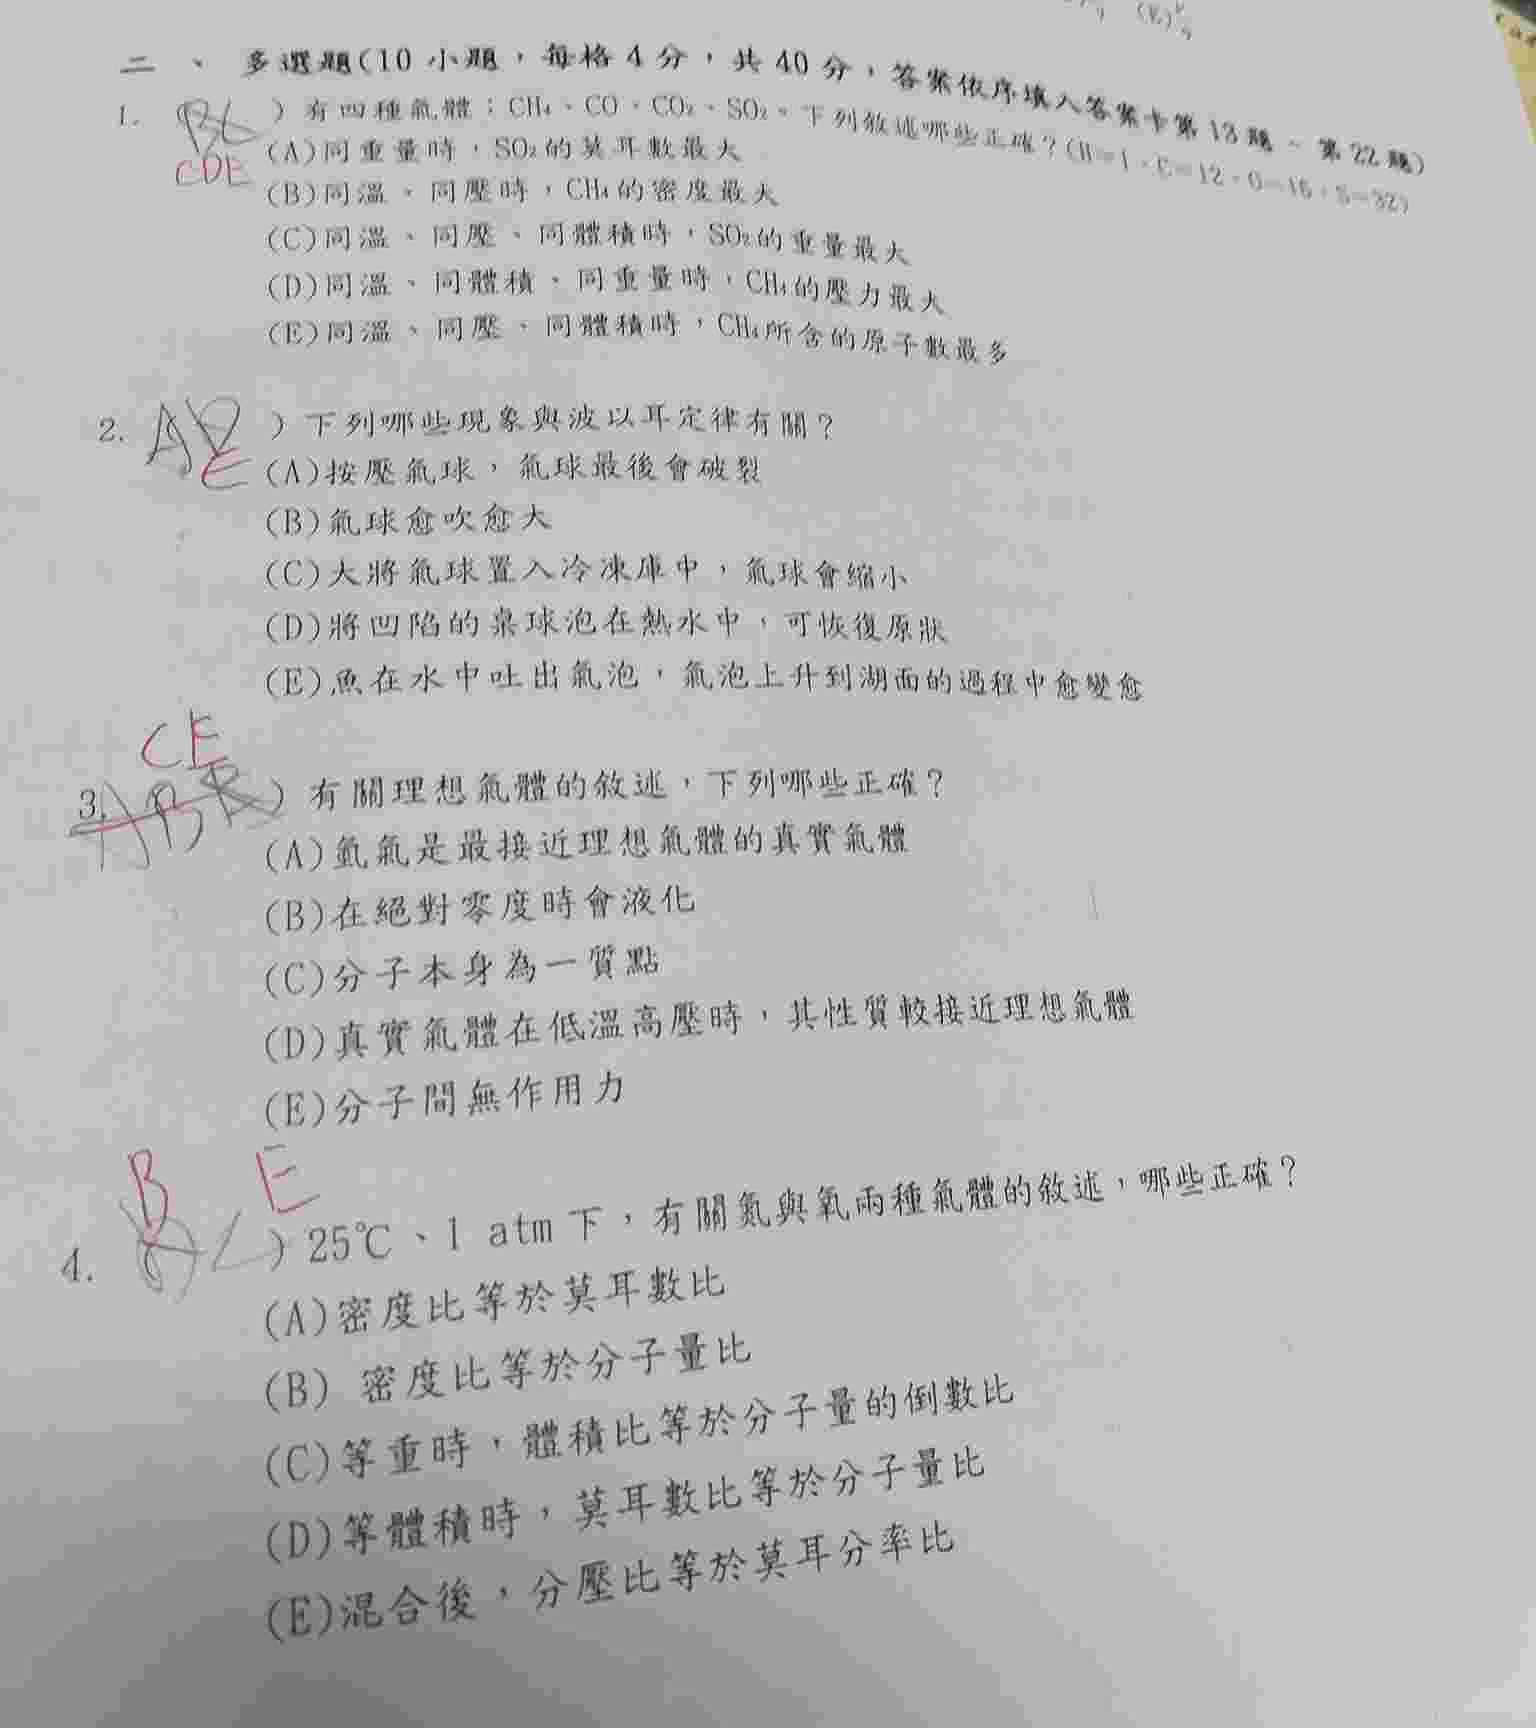 二、多選題(10小題，每格4分，共40分，答案依序填入答案卡第13題~第22題)
1. BC )有四種氣體：CH₄、CO、CO₂、SO₂。下列敘述哪些正確？(H=1，C=12，O=16，S=32)
CDE
(A)同重量時，SO₂的莫耳數最大
(B)同溫、同壓時，CH₄的密度最大
(C)同溫、同壓、同體積時，SO₂的重量最大
(D)同溫、同體積、同重量時，CH₄的壓力最大
(E)同溫、同壓、同體積時，CH₄所含的原子數最多
2. AD )下列哪些現象與波以耳定律有關？
E
(A)按壓氣球，氣球最後會破裂
(B)氣球愈吹愈大
(C)大將氣球置入冷凍庫中，氣球會縮小
(D)將凹陷的桌球泡在熱水中，可恢復原狀
(E)魚在水中吐出氣泡，氣泡上升到湖面的過程中愈變愈
CE
3. AB )有關理想氣體的敘述，下列哪些正確？
(A)氫氣是最接近理想氣體的真實氣體
(B)在絕對零度時會液化
(C)分子本身為一質點
(D)真實氣體在低溫高壓時，其性質較接近理想氣體
(E)分子間無作用力
B E
4. )25℃、1 atm下，有關氮與氧兩種氣體的敘述，哪些正確？
(A)密度比等於莫耳數比
(B) 密度比等於分子量比
(C)等重時，體積比等於分子量的倒數比
(D)等體積時，莫耳數比等於分子量比
(E)混合後，分壓比等於莫耳分率比